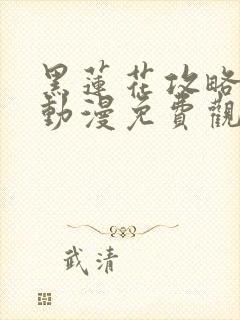 黑蓮花攻略
動漫免費觀
武清